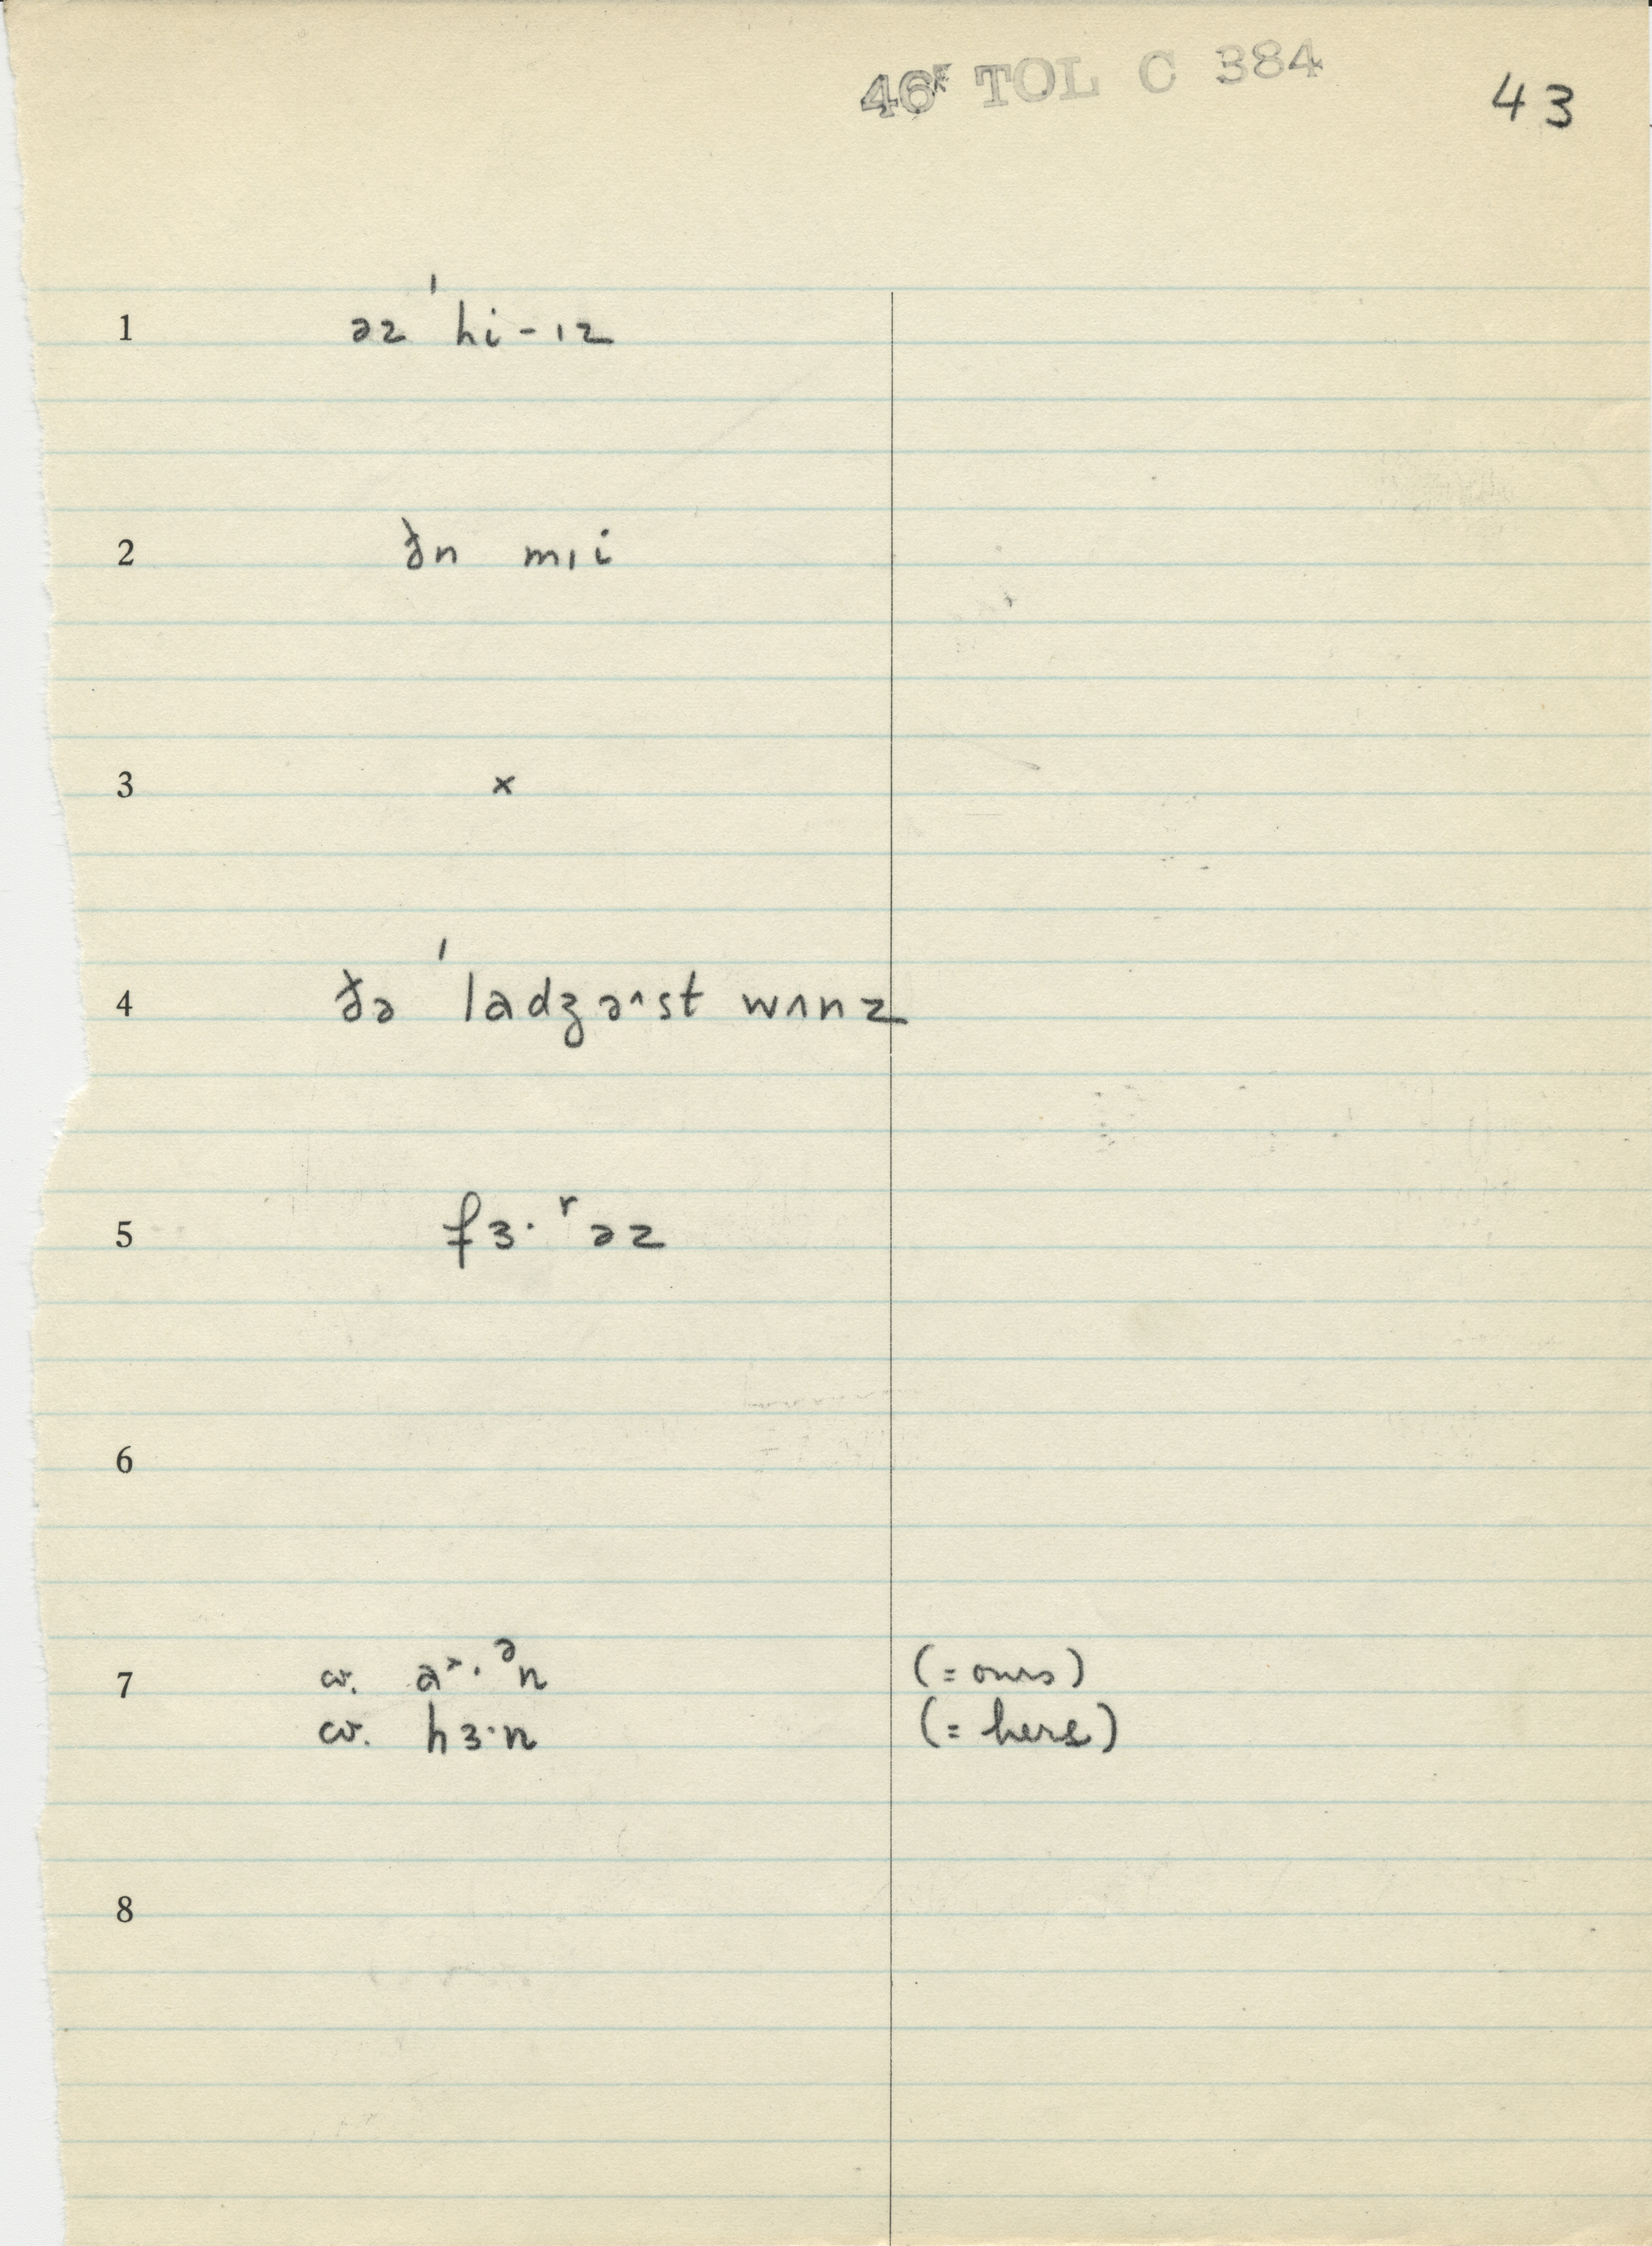 46F TOL C 384
43
1 əz ˈhi-ɪz
2 ðn mɪi
3 x
4 ðə ˈladʒə^st wʌnz
5 fɜ·ʳəz
6
7 cv. a˃·ᵊn (= ours)
cv. hɜ·n (= hers)
8